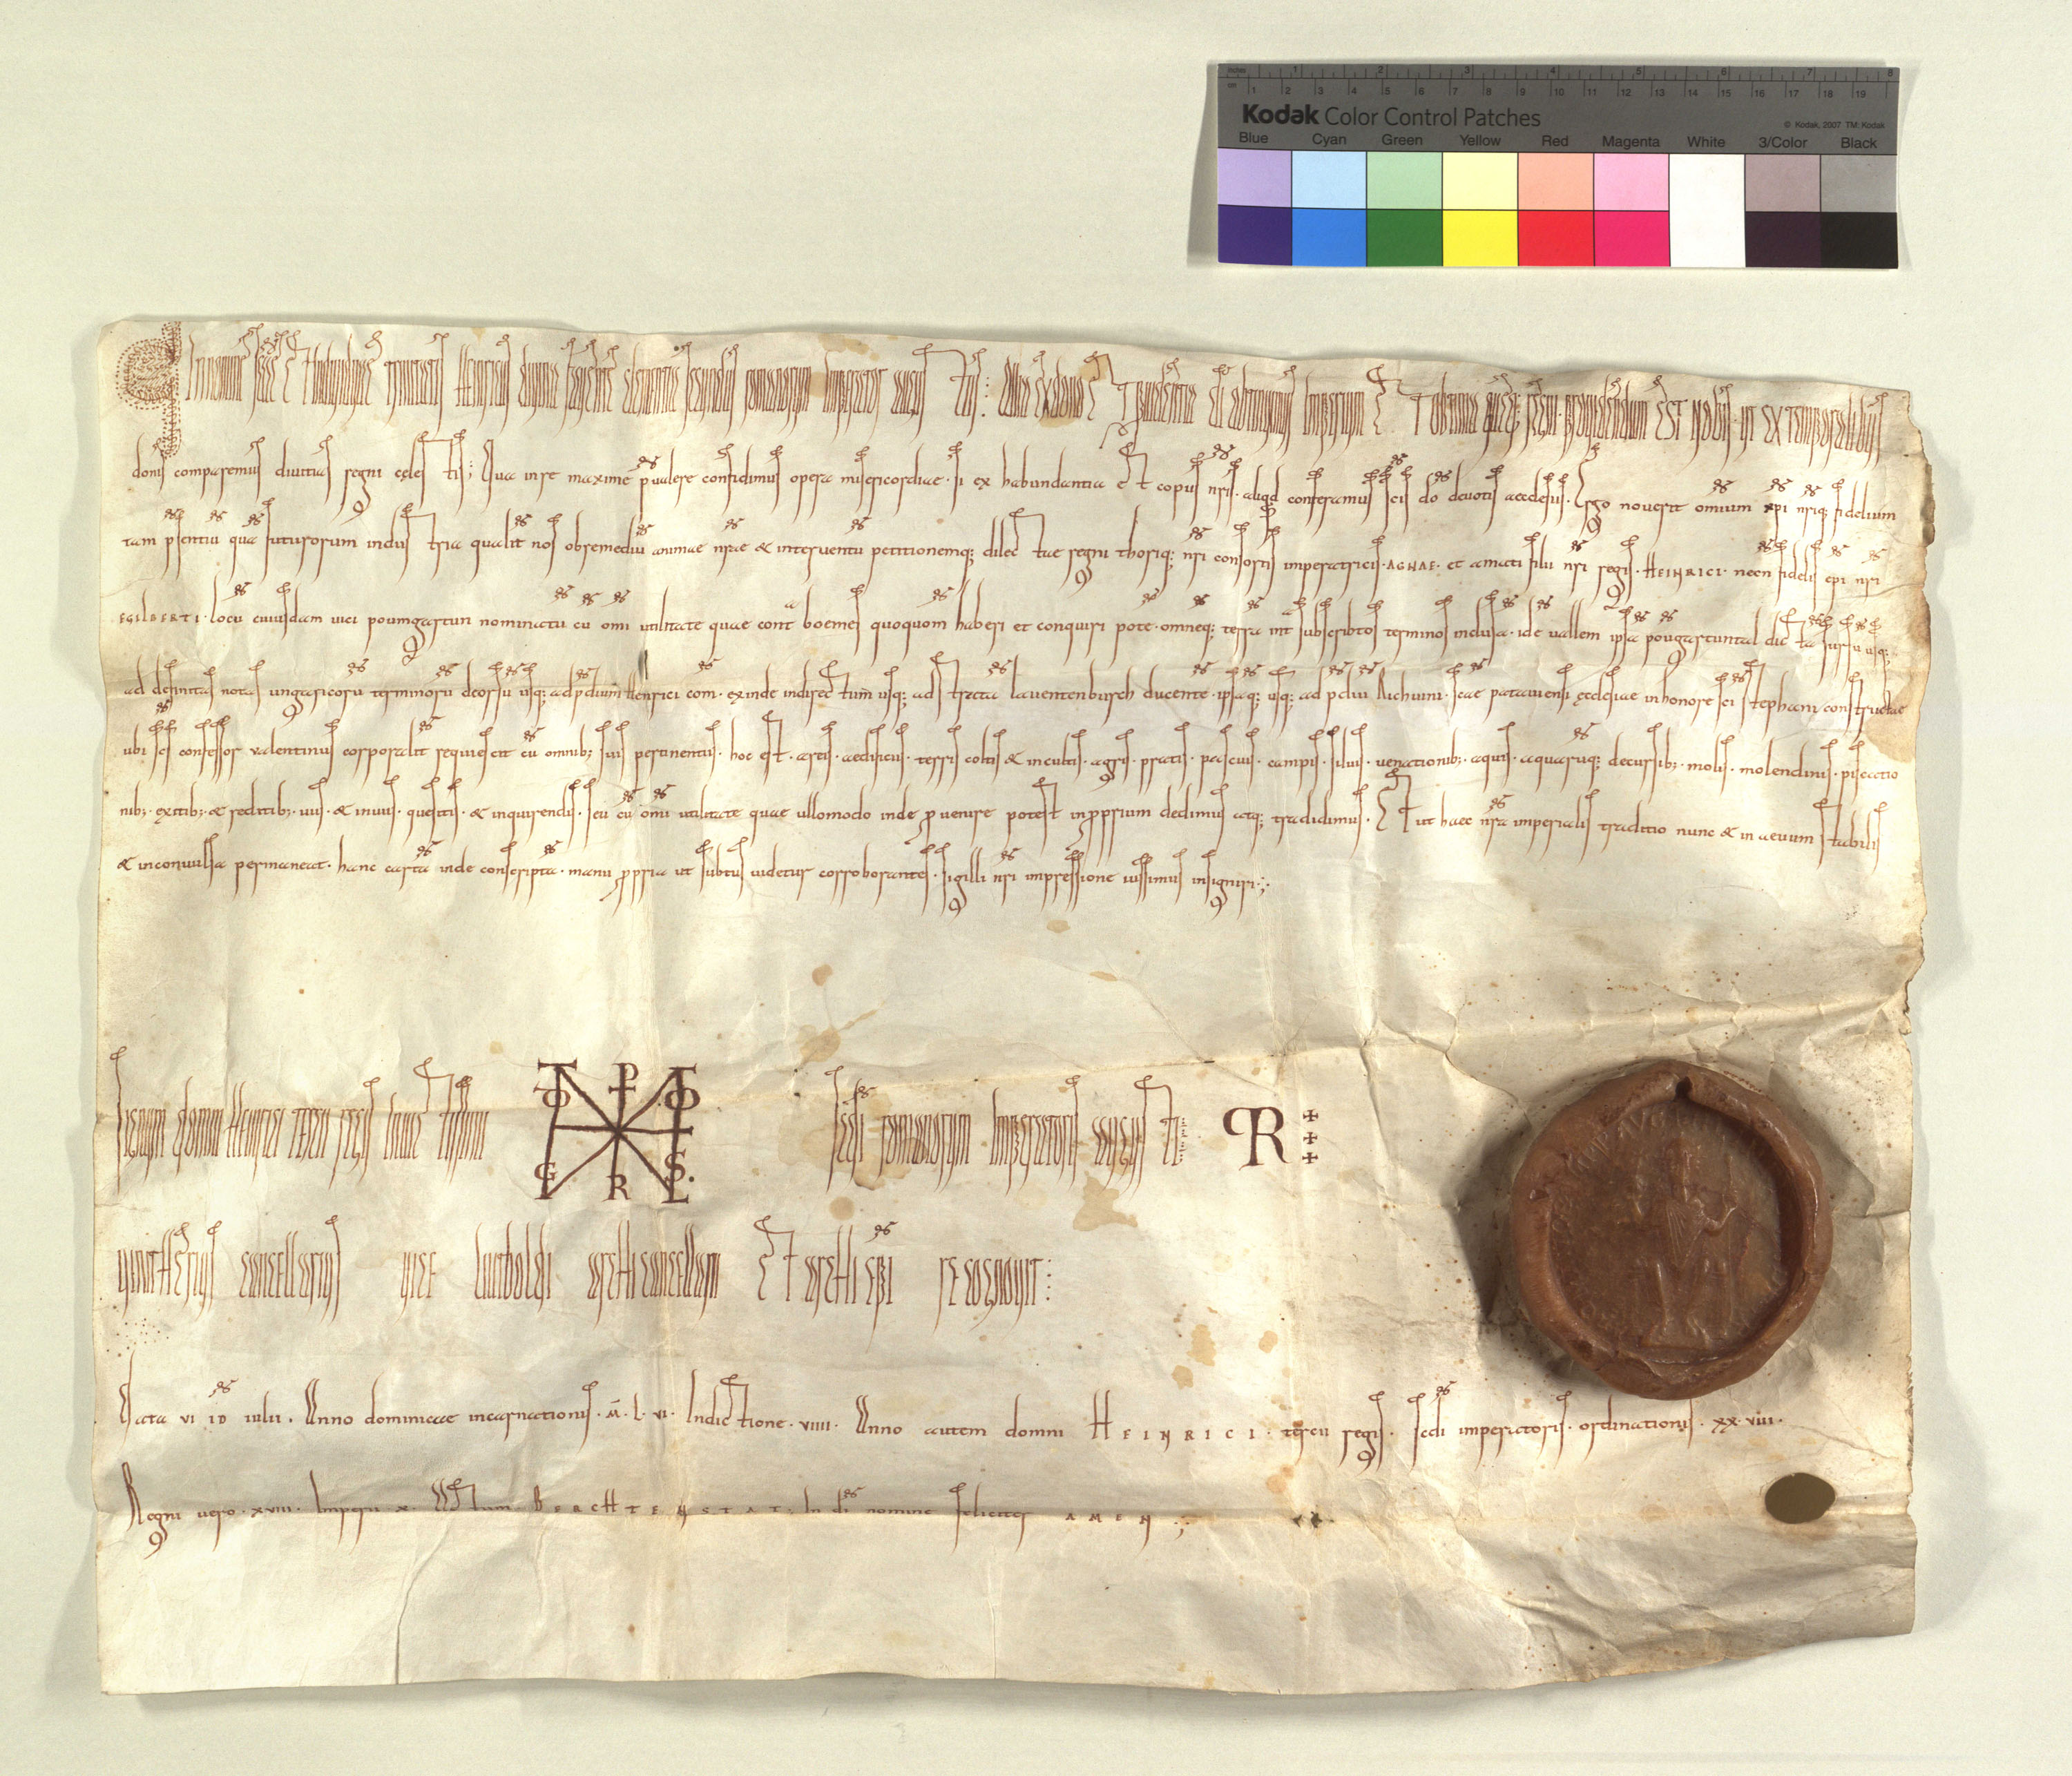 inches 1 2 3 4 5 6 7 8
cm 1 2 3 4 5 6 7 8 9 10 11 12 13 14 15 16 17 18 19
Kodak Color Control Patches © Kodak, 2007 TM: Kodak
Blue Cyan Green Yellow Red Magenta White 3/Color Black
In nomine scae et individuae trinitatis Heinricus divina favente clementia secundus romanorum imperator augustus
donis comparemus divitias regni celestis; Qua in re maxime pvalere confidimus opera misericordiae· si ex habundantia et copiis nris· aliqd conferamus scis do devotis aecclesiis· Ergo noverit omium xpi nrisq; fidelium
tam psentiu qua futurorum industria qualit nos ob remediu animae nrae & interventu petitionemq; dilectae regni thoriq; nri consortis imperatricis· AGNAE· et amati filii nri regis· HEINRICI· necn fidelis epi nri
EGILBERTI· locu cuiusdam vici poumgartun nominatu cu omi utilitate quae cont boemos quoquom haberi et conquiri pote· omneq; terra int subscribtos terminos inclusa· ide vallem ipsa pougartuntal dicta sursu usq;
ad definitas notas ungaricoru terminoru deorsu usq; ad pdium Henrici com· exinde in directum usq; ad strata laventenburch ducente· ipsaq; usq; ad pdiu Richuuini· scae pataviensi ecclesiae in honore sci stephani constructae
ubi scs confessor valentinus corporalit requiescit cu omnib; suis pertinentiis· hoc est· areis· aedificiis· terris cultis & incultis· agris· pratis· pascuis· campis· silvis· venationib; aquis· aquarūq; decursib; molis· molendinis· piscatio
nib; exitib; & reditib; viis· & inviis· quesitis· & inquirendis· seu cu omi utilitate quae ullomodo inde pvenire potest in pprium dedimus atq; tradidimus· Et ut haec nra imperialis traditio nunc & in aevum stabilis
& inconvulsa permaneat· hanc carta inde conscripta· manu ppria ut subtus videtur corroborantes· sigilli nri impressione iussimus insigniri·
Signum domni Heinrici tercii regis invictissimi scdi romanorum imperatoris augusti
uuinitherius cancellarius vice liutboldi archicancellarii et archiepi recognovit
Data VI ID iulii· Anno dominicae incarnationis· M· L· VI· Indictione· VIIII· Anno autem domni HEINRICI· tercii regis· scdi imperatoris· ordinationis· XX·VIII·
Regni vero· XVIII· Imperii· X· Actum BERCHTENSTAT· In di nomine feliciter AMEN